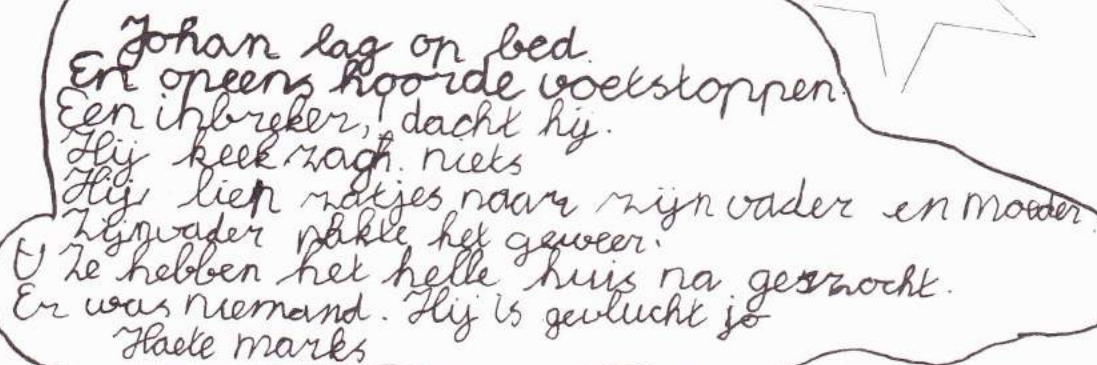 Johan lag op bed.
En opeens hoorde voetstoppen.
Een inbreker, dacht hij.
Hij keek zag niets
Hij liep zatjes naar zijn vader en moeder
Zijn vader pakte het geweer.
Ze hebben het helle huis na gezocht.
Er was niemand. Hij is gevlucht jo
marks